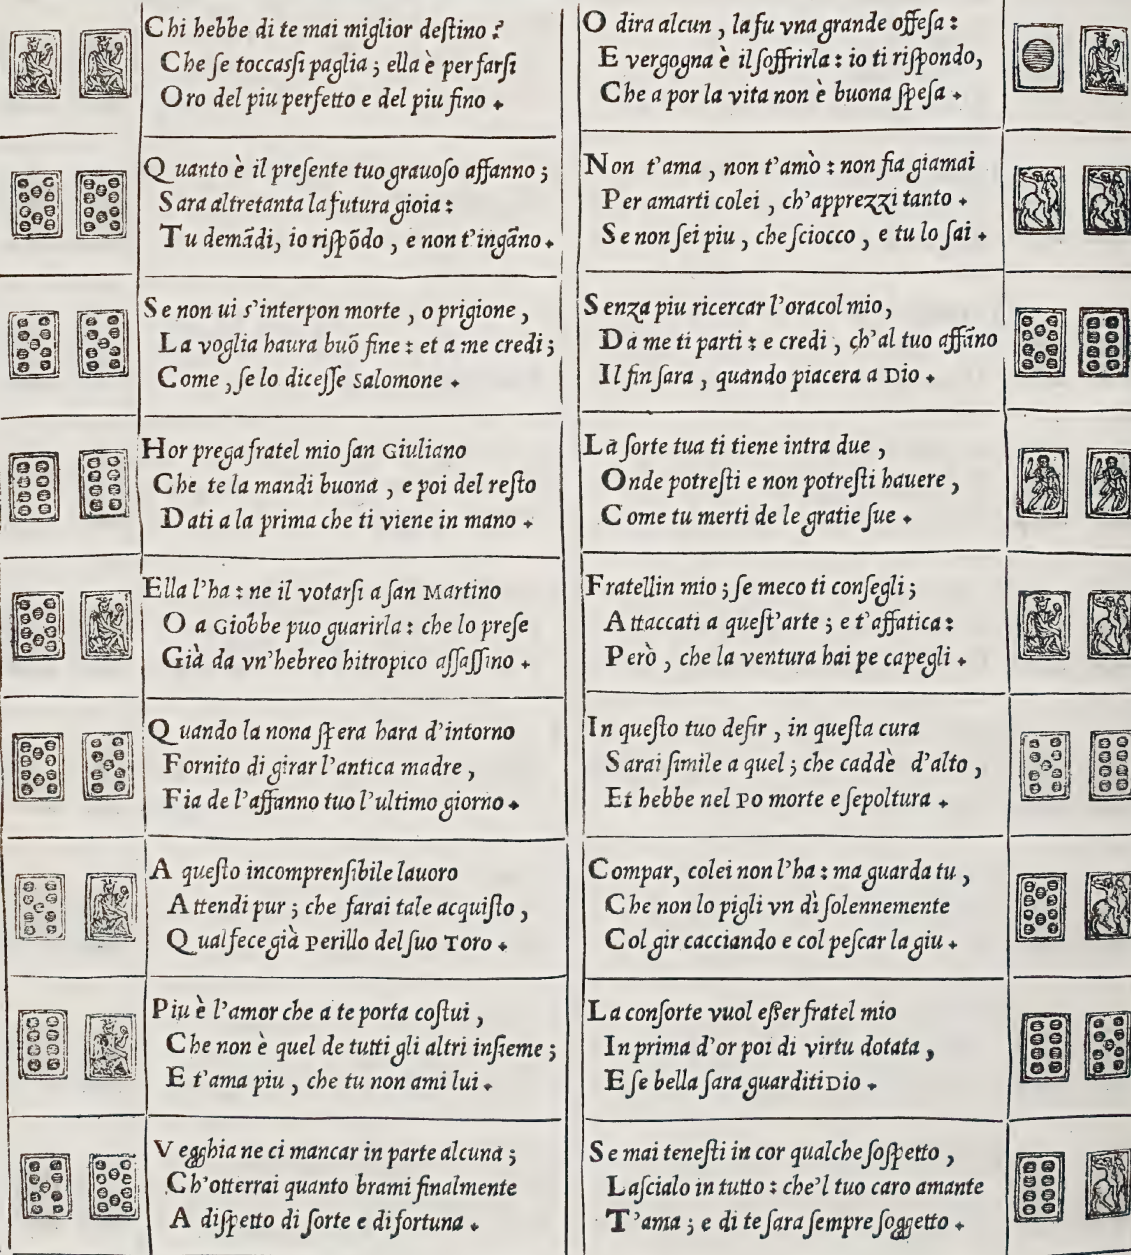 Chi hebbe di te mai miglior deſtino ?
Che ſe toccaſſi paglia ; ella è per farſi
Oro del piu perfetto e del piu fino .
Quanto è il preſente tuo grauoſo affanno ;
Sara altretanta la futura gioia :
Tu demãdi, io riſpõdo , e non t'ingãno.
Se non ui s'interpon morte , o prigione ,
La voglia haura buõ fine : et a me credi ;
Come , ſe lo diceſſe Salomone .
Hor prega fratel mio ſan Giuliano
Che te la mandi buona , e poi del reſto
Dati a la prima che ti viene in mano .
Ella l'ha : ne il votarſi a ſan Martino
O a Giobbe puo guarirla : che lo preſe
Già da vn'hebreo hitropico aſſaſſino .
Quando la nona ſpera hara d'intorno
Fornito di girar l'antica madre ,
Fia de l'affanno tuo l'ultimo giorno .
A queſto incomprenſibile lauoro
Attendi pur ; che farai tale acquiſto ,
Qual fece già Perillo del ſuo Toro .
Piu è l'amor che a te porta coſtui ,
Che non è quel de tutti gli altri inſieme ;
E t'ama piu , che tu non ami lui .
Vegghia ne ci mancar in parte alcuna ;
Ch'otterrai quanto brami finalmente
A diſpetto di ſorte e di fortuna .
O dira alcun , la fu vna grande offeſa :
E vergogna è il ſoffrirla : io ti riſpondo,
Che a por la vita non è buona ſpeſa .
Non t'ama , non t'amò : non fia giamai
Per amarti colei , ch'apprezzi tanto .
Se non ſei piu , che ſciocco , e tu lo ſai .
Senza piu ricercar l'oracol mio,
Da me ti parti : e credi , ch'al tuo affãno
Il fin ſara , quando piacera a Dio .
La ſorte tua ti tiene intra due ,
Onde potreſti e non potreſti hauere ,
Come tu merti de le gratie ſue .
Fratellin mio ; ſe meco ti conſegli ;
Attaccati a queſt'arte ; e t'affatica :
Però , che la ventura hai pe capegli .
In queſto tuo deſir , in queſta cura
Sarai ſimile a quel ; che caddè d'alto ,
Et hebbe nel Po morte e ſepoltura .
Compar, colei non l'ha : ma guarda tu ,
Che non lo pigli vn dì ſolennemente
Col gir cacciando e col peſcar la giu .
La conſorte vuol eſſer fratel mio
In prima d'or poi di virtu dotata ,
E ſe bella ſara guarditi Dio .
Se mai teneſti in cor qualche ſoſpetto ,
Laſcialo in tutto : che'l tuo caro amante
T'ama ; e di te ſara ſempre ſoggetto .